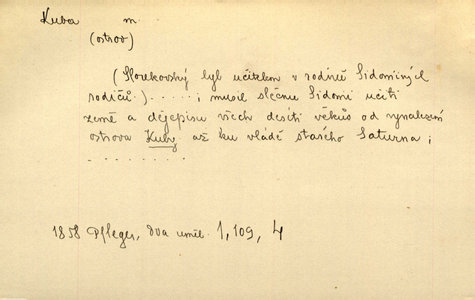 Kuba m.
(ostrov)
(Slovekovský byl učitelem v rodině Sidoniných
rodičů.) . . . . . ; musil slečnu Sidonii učiti
země a dějepisu všech desíti věků od vynalezení
ostrova Kuby až ku vládě starého Saturna ;
. . . . . . . . .
1858 Pfleger, Dva uměl. 1, 109, 4